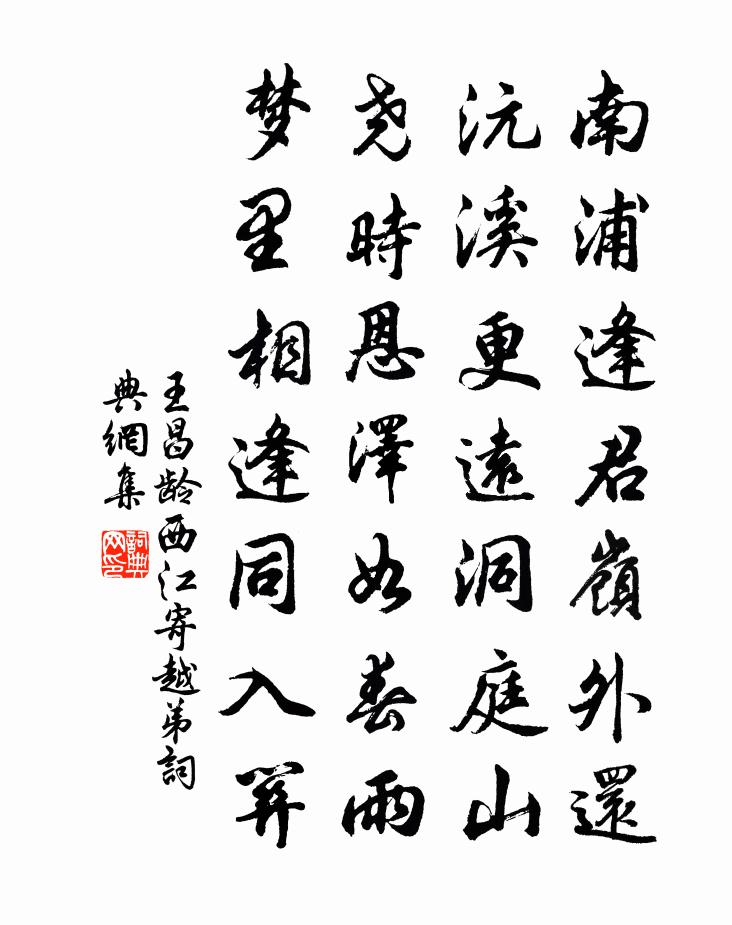 南浦逢君嶺外還
沅溪更遠洞庭山
尧時恩澤如春雨
梦里相逢同入关
王昌龄西江寄越弟詞
典網集
詞典
网印